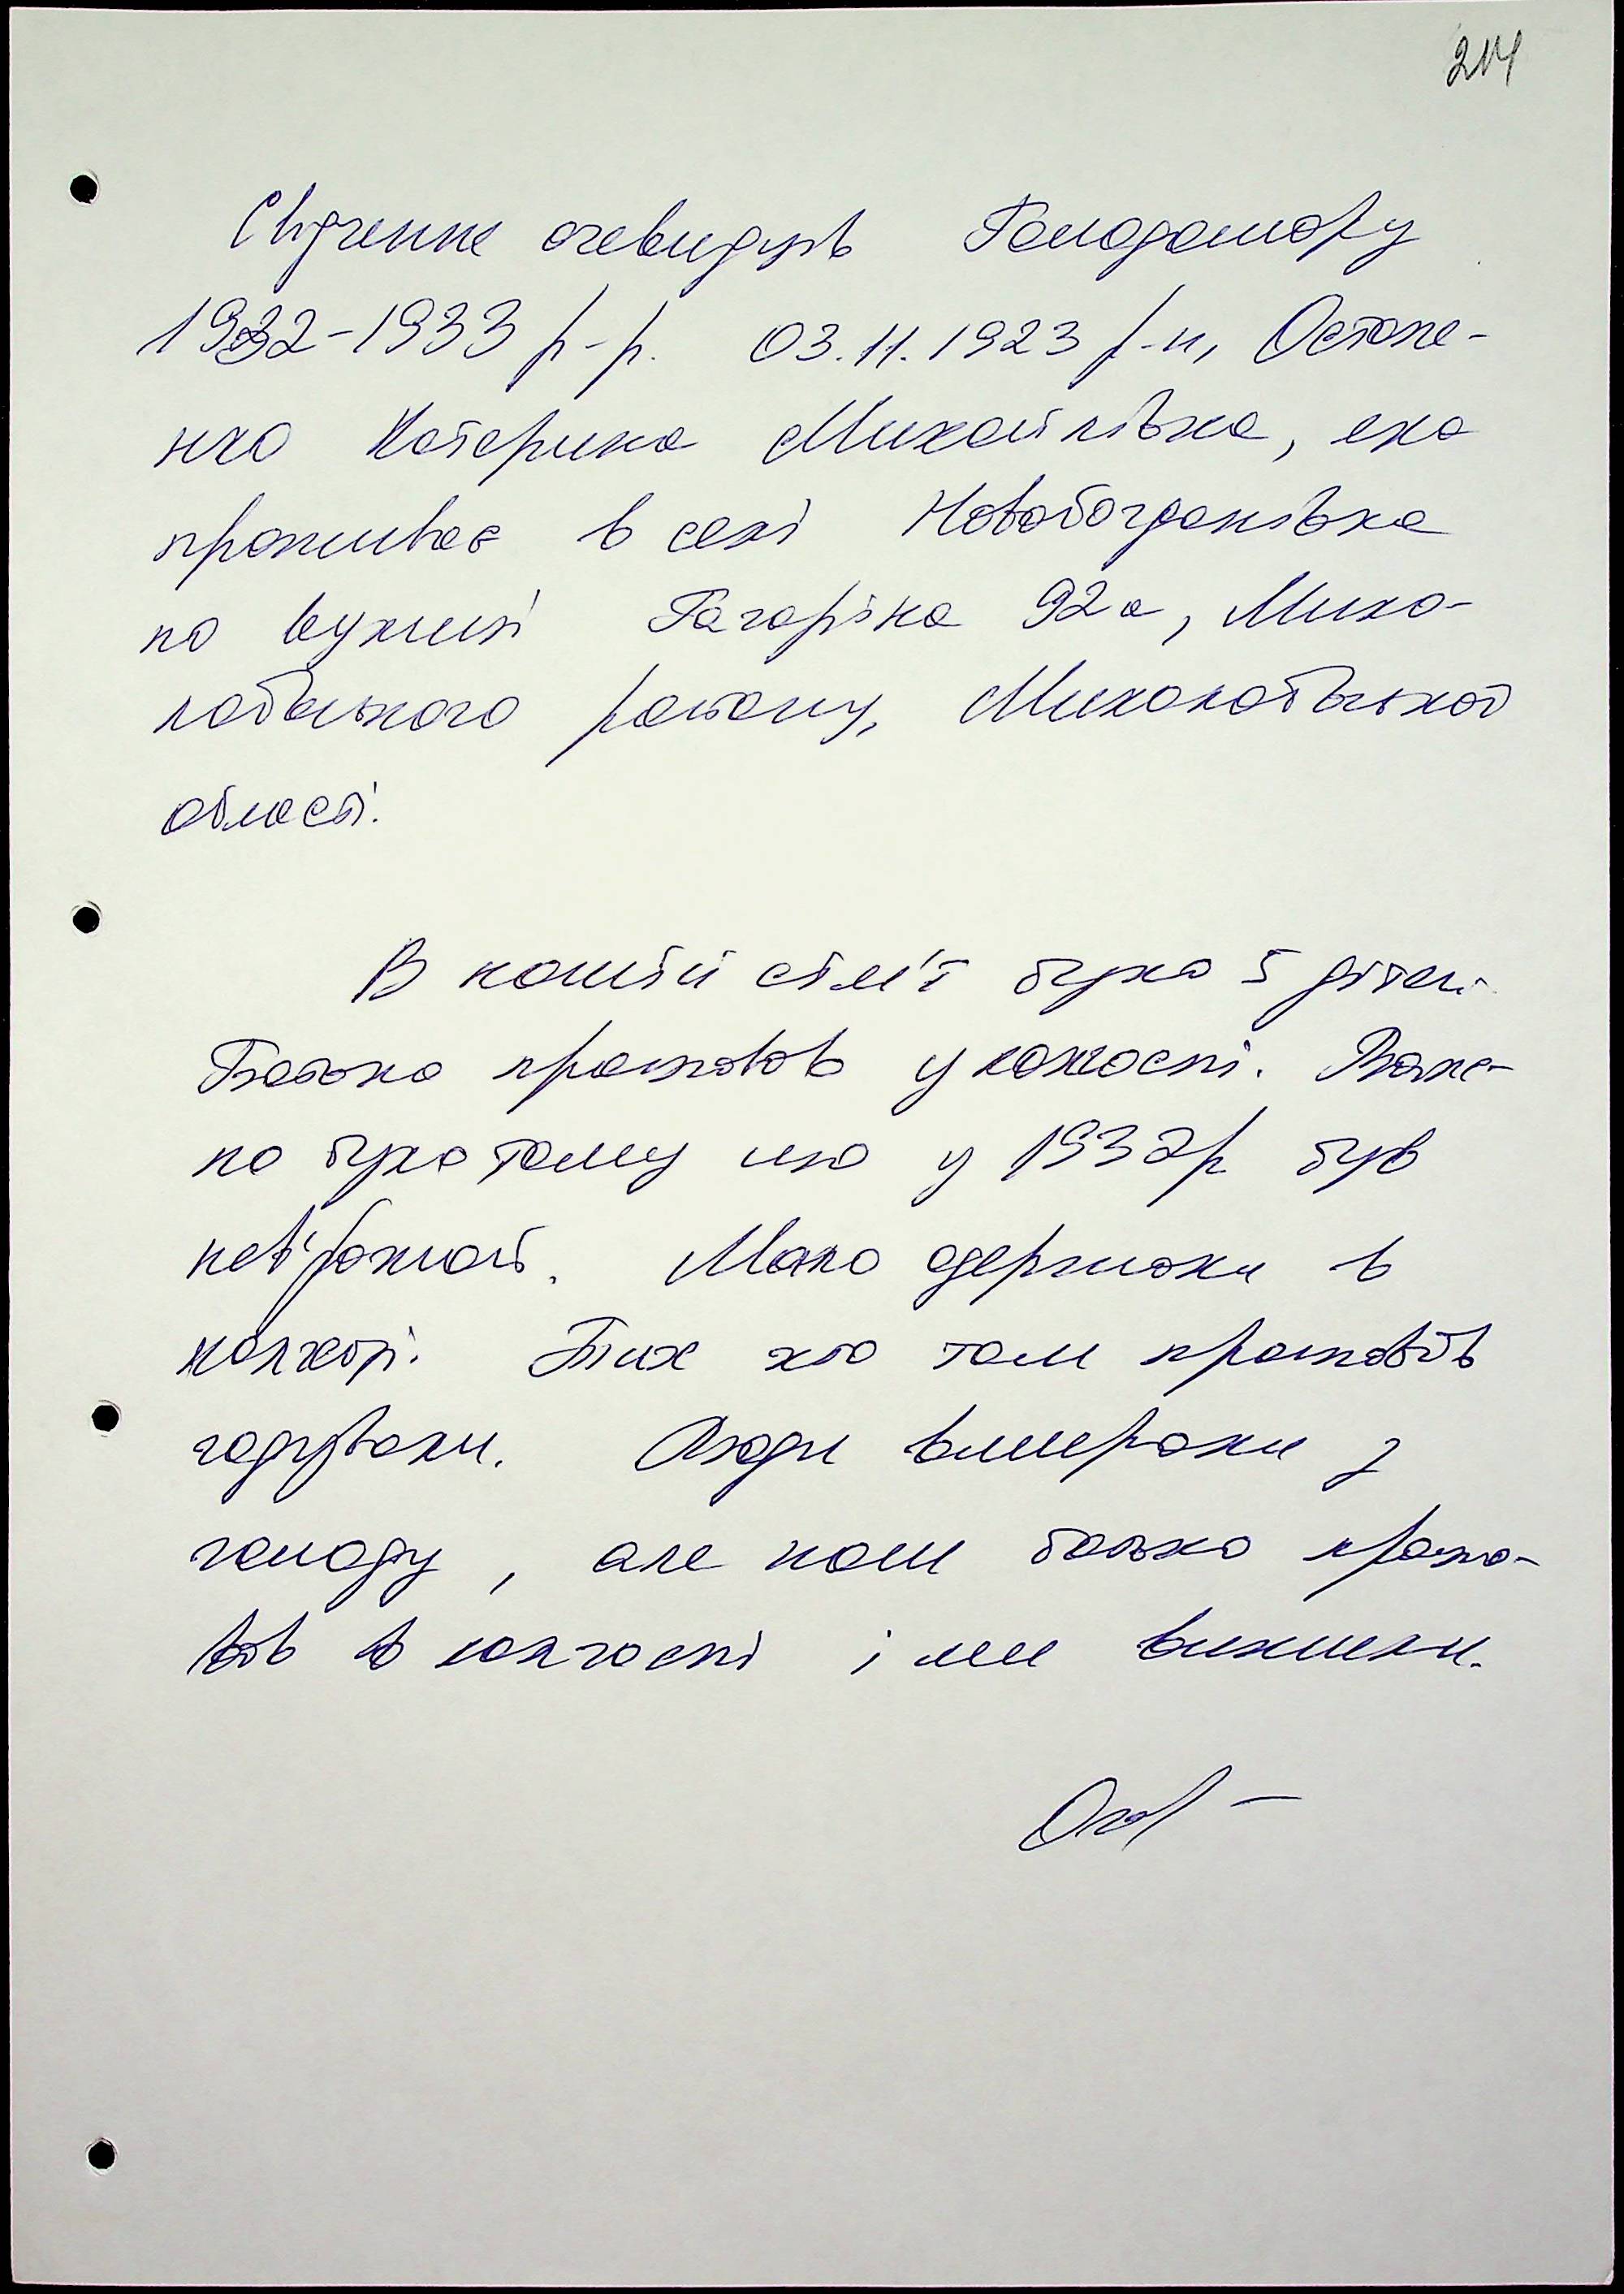 214
Свідчення очевидців Голодомору
1932-1933 р-р. 03.11.1923 р-н, Остапе-
нко Катерина Михайлівна, яка
проживає в селі Новобогданівка
по вулиці Гагаріна 92а, Мико-
лаївського району, Миколаївської
області.
В нашій сім'ї було 5 дітей.
Батько працював у колгоспі. Важ-
ко було тому що у 1932р був
неврожай. Мало одержали в
колгоспі. Тих хто там працював
годували. Люди вмирали з
голоду, але наш батько працю-
вав в колгоспі і ми вижили.